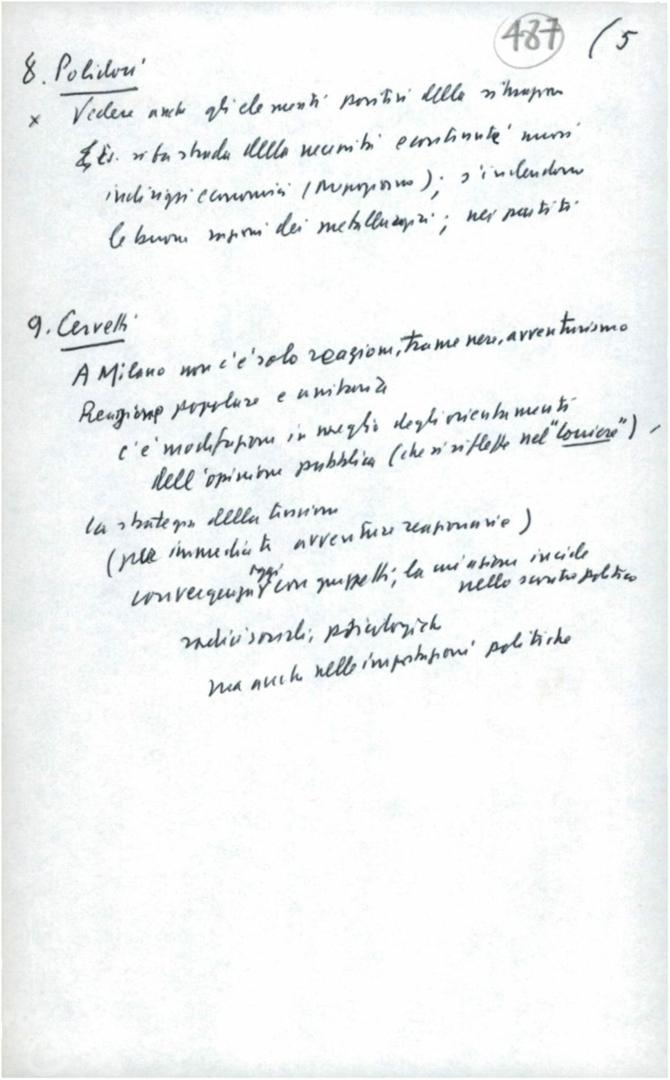 487 (5
8. Polidori
x Vedere anche gli elementi positivi della situazione
Es. si fa strada della necessità e continuità nuovi
indirizzi economici (Mezzogiorno); s'intendono
le buone ragioni dei metallurgici; nei partiti
9. Cervetti
A Milano non c'è solo reazione, trame nere, avventurismo
Reazione popolare e unitaria
c'è modificazione in meglio degli orientamenti
dell'opinione pubblica (che si riflette nel "Corriere")
la strategia della tensione
(per immediate avventure reazionarie)
convergenza oggi con gruppetti; la cui azione incide
nello scontro politico
radici sociali, psicologiche
ma anche nelle impostazioni politiche